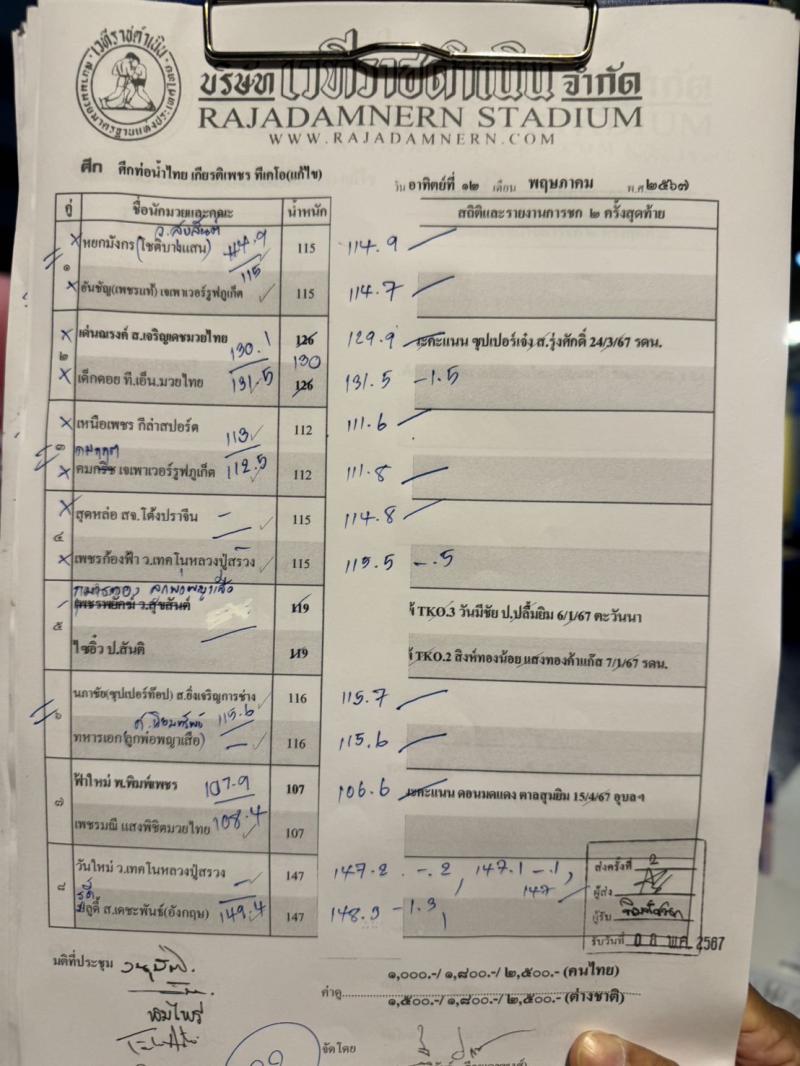 เวทีราชดำเนิน
บริษัท เวทีราชดำเนิน จำกัด
RAJADAMNERN STADIUM
WWW.RAJADAMNERN.COM
ศึก ศึกท่อน้ำไทย เกียรติเพชร ทีเคโอ(แก้ไข)
วัน อาทิตย์ที่ ๑๒ เดือน พฤษภาคม พ.ศ ๒๕๖๗
คู่ ชื่อนักมวยและคณะ น้ำหนัก สถิติและรายงานการชก ๒ ครั้งสุดท้าย
๑
หยกมังกร(โชติบางแสน) 114.9 115 114.9
115
อันชัญ(เพชรแท้) เจเพาเวอร์รูฟภูเก็ต 115 114.7
๒
เด่นณรงค์ ส.เจริญเดชมวยไทย 130.1 126 129.9 คะแนน ซุปเปอร์เจ๋ง ส.รุ่งศักดิ์ 24/3/67 รดน.
130
เด็กดอย ที.เอ็น.มวยไทย 131.5 126 131.5 -1.5
๓
เหนือเพชร กีล่าสปอร์ต 113 112 111.6
คมกริช เจเพาเวอร์รูฟภูเก็ต 112.5 112 111.8
๔
สุดหล่อ สจ.โต้งปราจีน 115 114.8
เพชรก้องฟ้า ว.เทคโนหลวงปู่สรวง 115 115.5 -.5
๕
ลูกพ่อพญาเสือ
เพชรพยัคฆ์ ว.สุขสันต์ 119 TKO.3 วันมีชัย ป.ปลื้มยิม 6/1/67 ตะวันนา
ไซอิ๋ว ป.สันติ 119 TKO.2 สิงห์ทองน้อย แสงทองค้าแก๊ส 7/1/67 รดน.
๖
นภาชัย(ซุปเปอร์ท๊อป) ส.ยิ่งเจริญการช่าง 116 115.7
115.6
ทหารเอก(ลูกพ่อพญาเสือ) 116 115.6
๗
ฟ้าใหม่ พ.พิมพ์เพชร 107.9 107 106.6 คะแนน ดอนมดแดง ตาลสุมยิม 15/4/67 อุบลฯ
เพชรมณี แสงพิชิตมวยไทย 108.4 107
๘
วันใหม่ ว.เทคโนหลวงปู่สรวง 147 147.2 -.2, 147.1 -.1,
147
ส.เดชะพันธ์(อังกฤษ) 149.4 147 148.3 -1.3,
ส่งครั้งที่ 2
ผู้ส่ง
ผู้รับ
รับวันที่ 08 พ.ค. 2567
มติที่ประชุม
ค่าดู ๑,๐๐๐.-/ ๑,๘๐๐.-/ ๒,๕๐๐.- (คนไทย)
๑,๕๐๐.-/ ๑,๘๐๐.-/ ๒,๕๐๐.- (ต่างชาติ)
จัดโดย